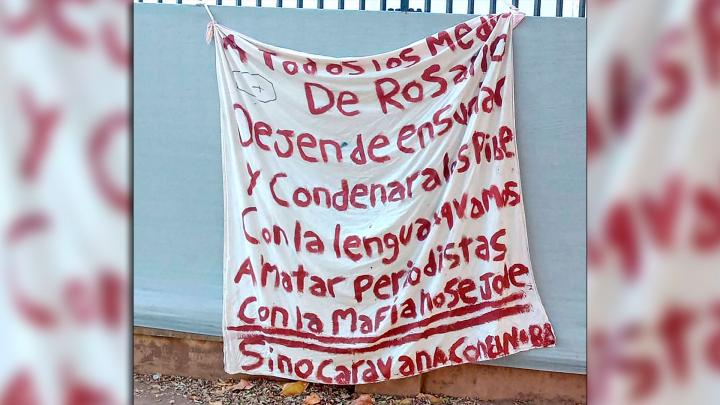 A Todos los Medio
De Rosario
Dejen de ensuciar
Y Condenar a los Pibe
Con la lengua
A Matar Periodistas
Con la Mafia no se Jode
Sino Caravana Con el